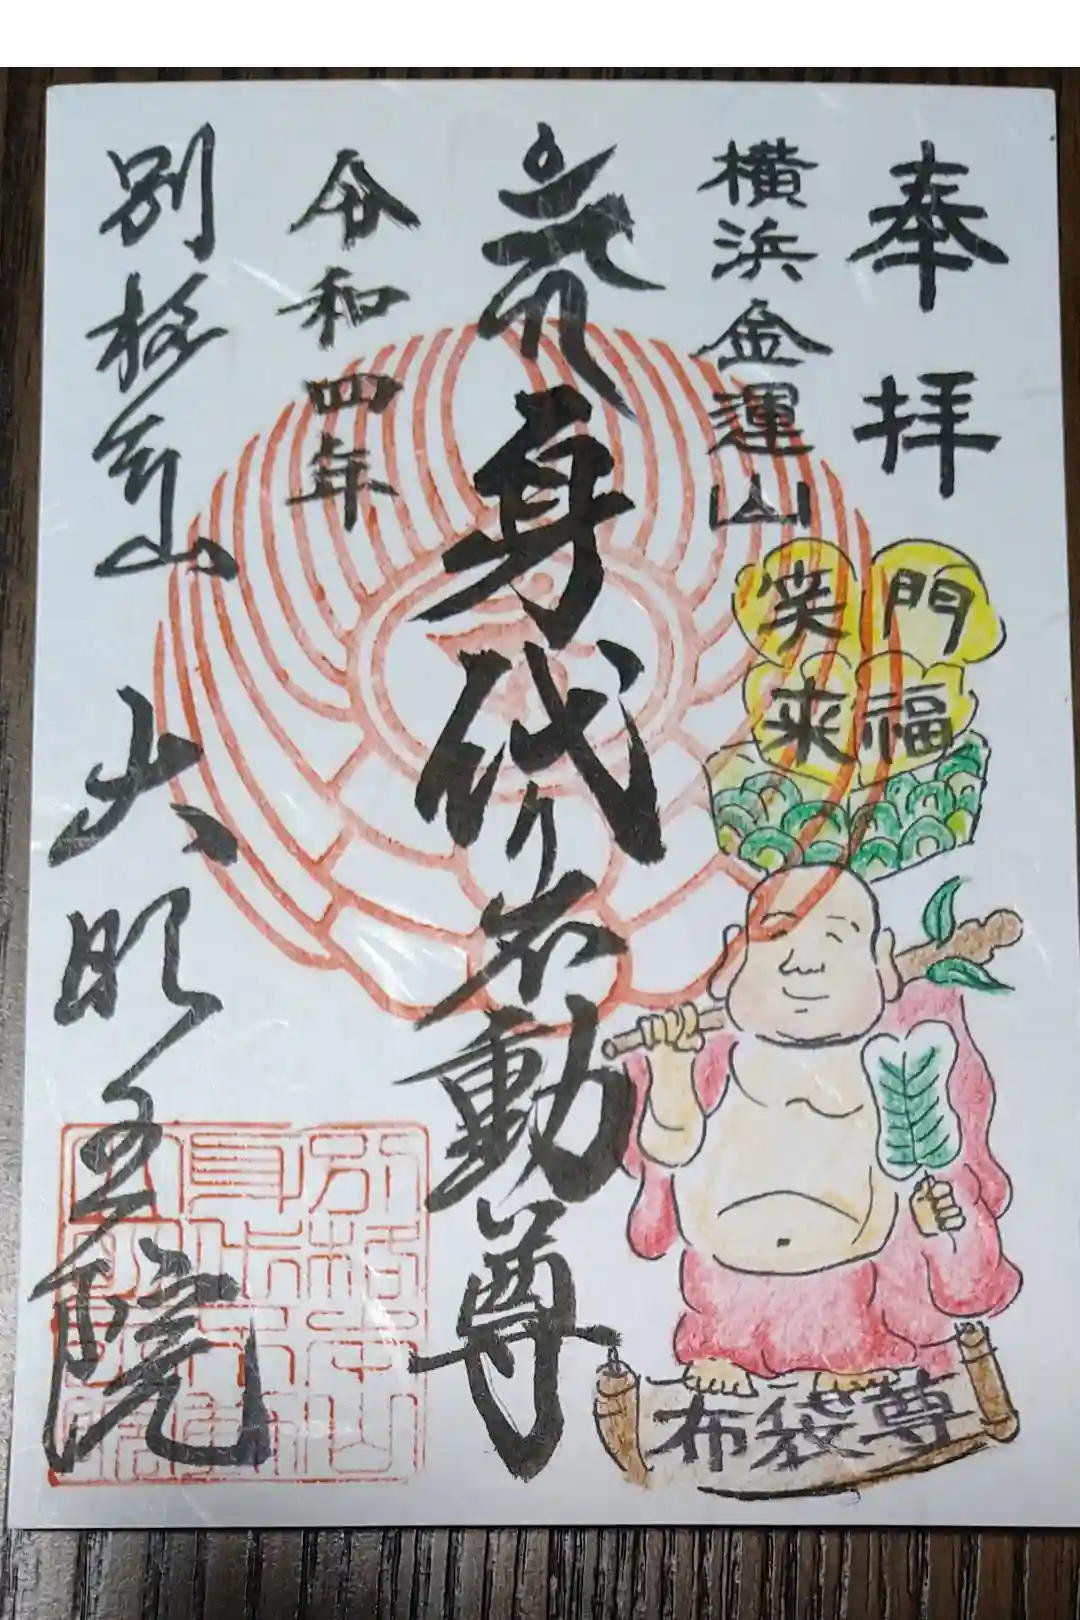 奉拝
横浜金運山
笑門
来福
布袋尊
身代り不動尊
令和四年
別格本山
大明王院